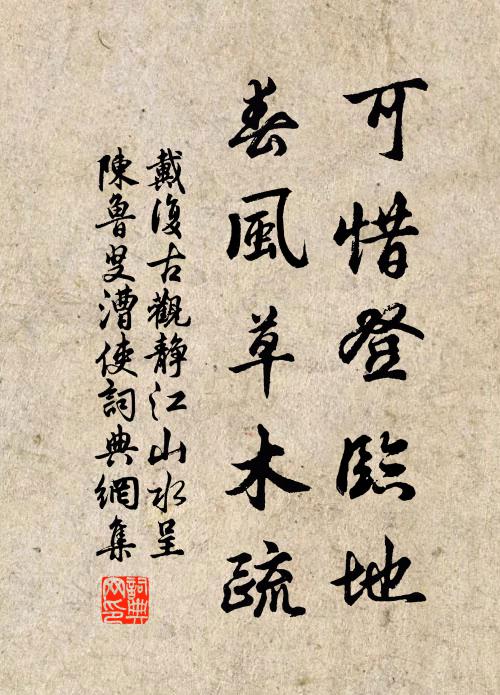 可惜登臨地
春風草木疏
戴復古觀靜江山水呈
陳魯叟漕使詞典網集
詞典
網印